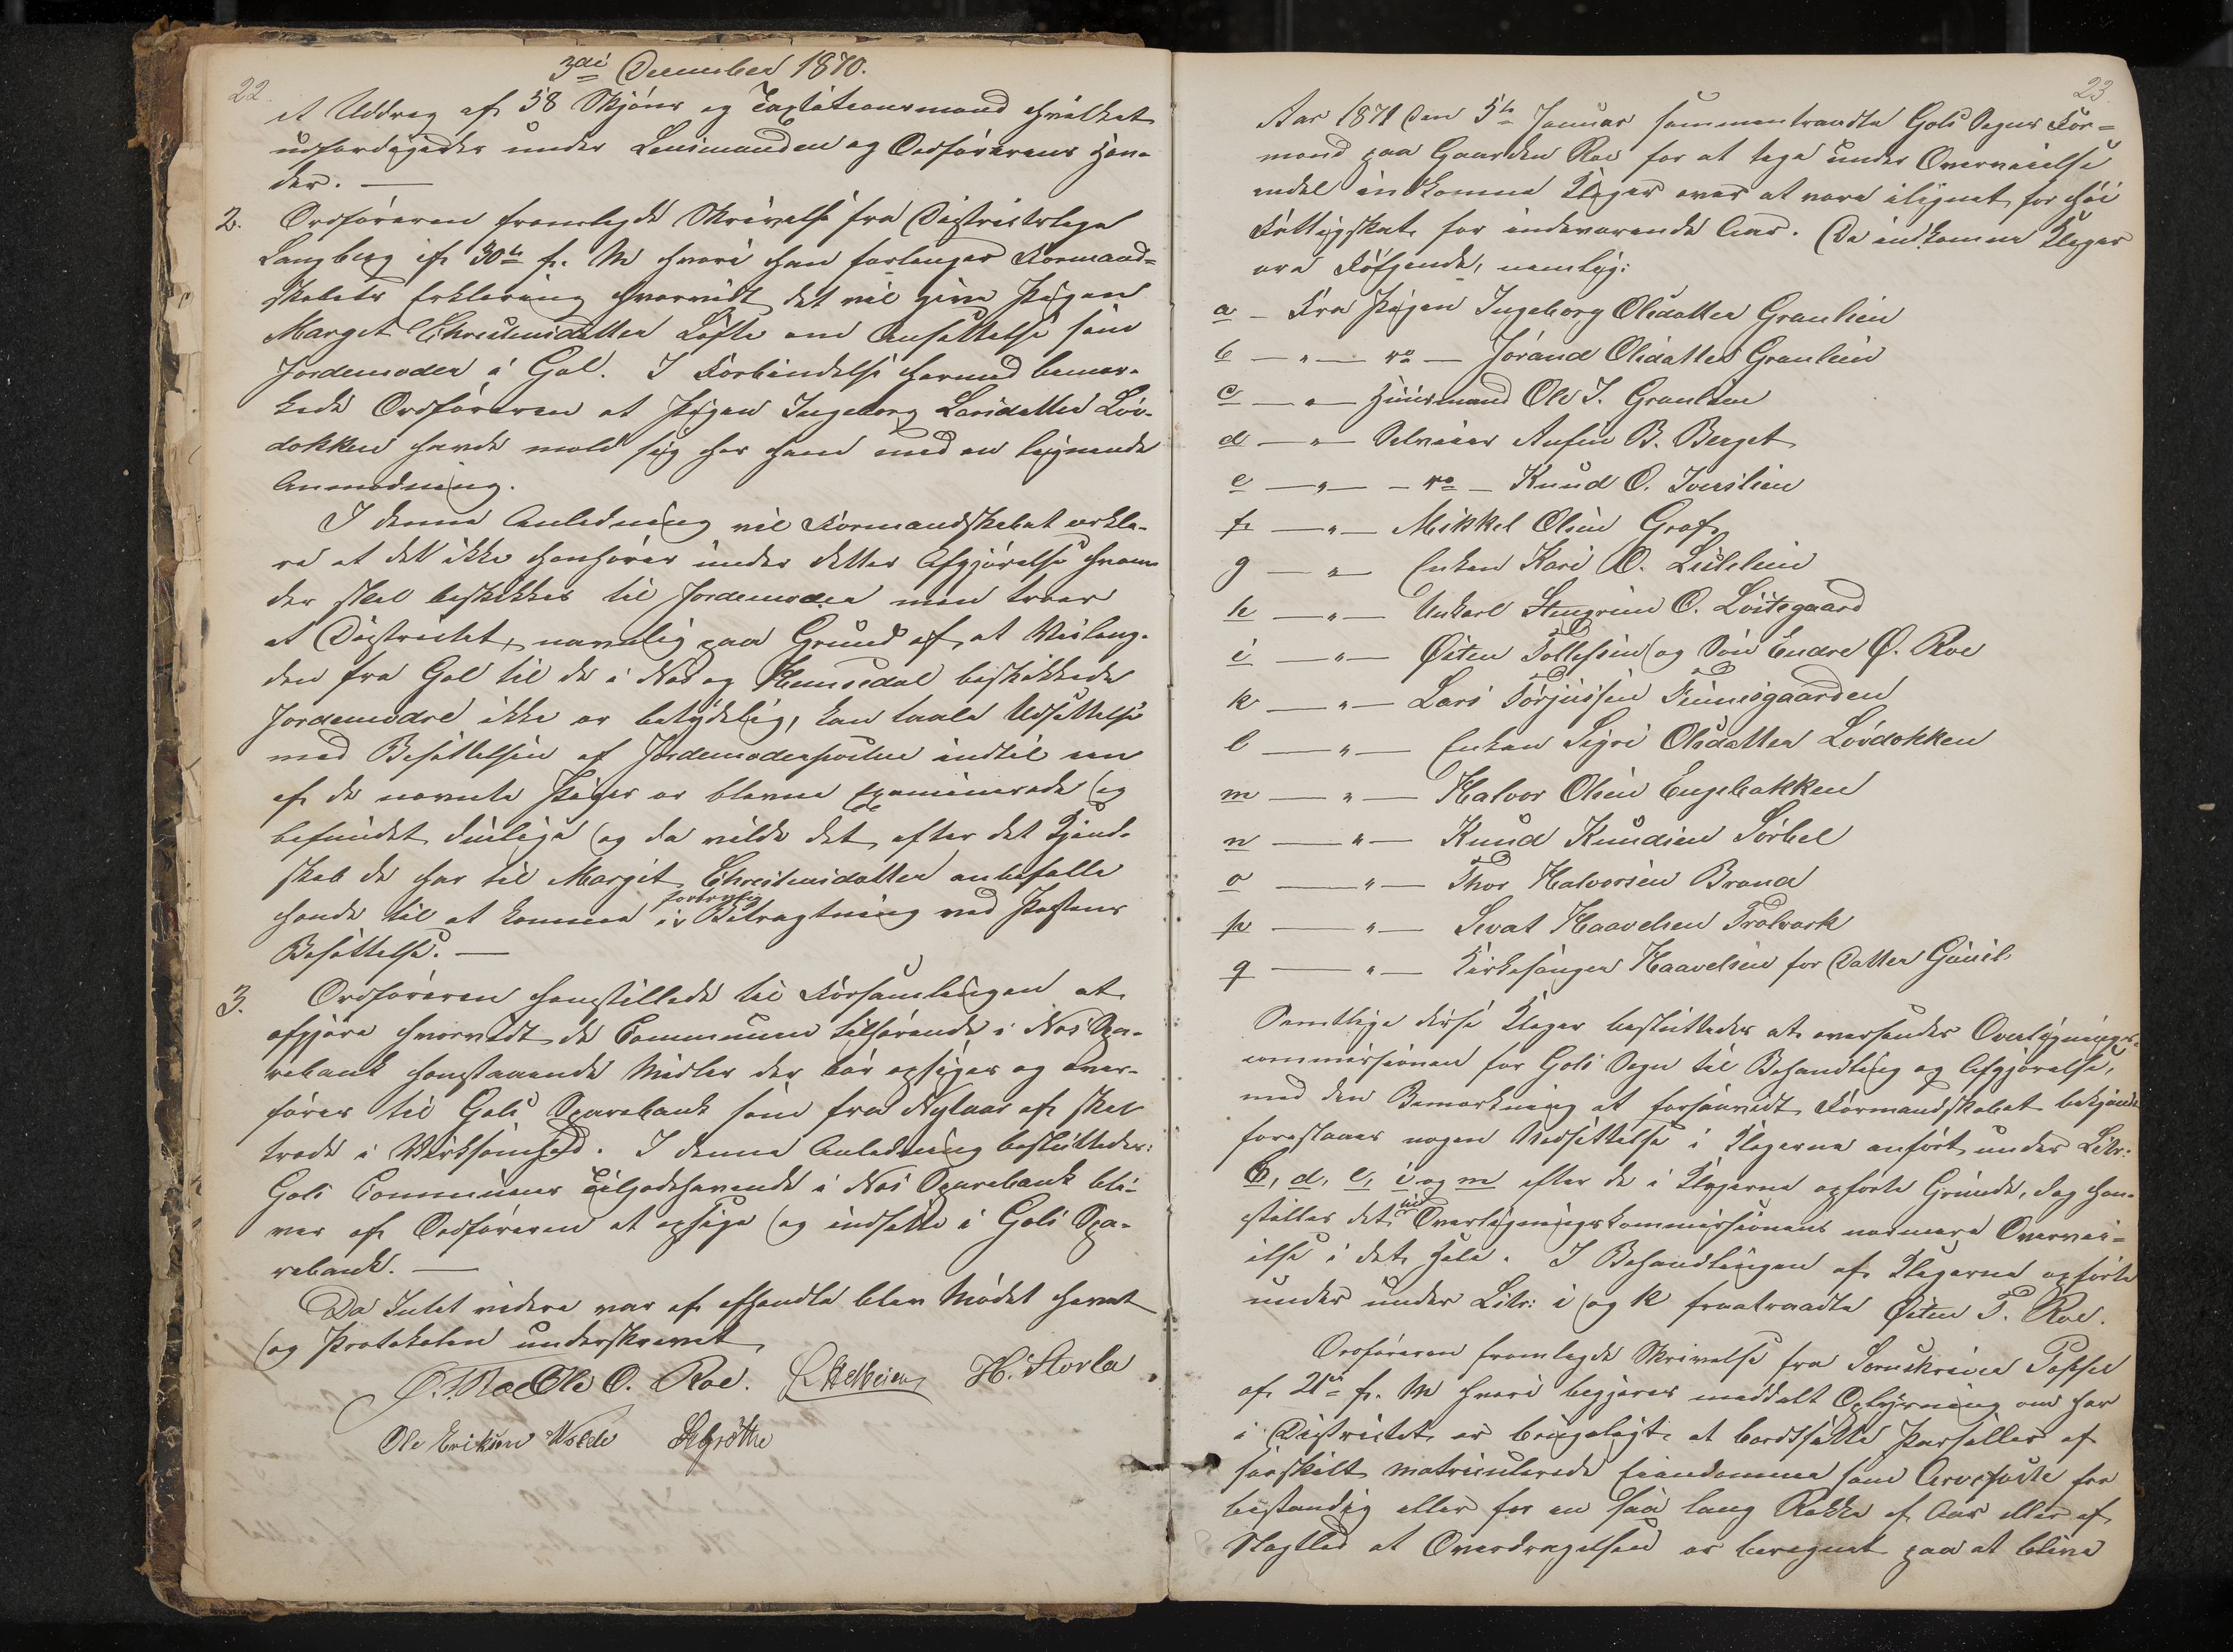 22.
3die December 1870.
et Uddrag af 58 Skjöns og Taxtationsmænd hvilket
udfærdigedes under Lensmanden og Ordförerens Hæn-
der. —
2. Ordföreren fremlagde Skrivelse fra Districtslæge
Langberg af 30te f. M hvori han forlanger Formand-
skabets Erklæring hvorvidt det vil give Pigen
Marget Christensdatter Löfte om Ansættelse som
Jordemoder i Gol. I Forbindelse hermed bemær-
kede Ordföreren at Pigen Ingeborg Larsdatter Löv-
dokken havde meldt sig for ham med en lignende
Anmodning.
I denne Anledning vil Formandskabet erklæ-
re at det ikke henhörer under dettes Afgjörelse hvem
der skal beskikkes til Jordemoder men troer
at Districtet, navnlig paa Grund af at Veilæng-
den fra Gol til de i Næs og Hemsedal beskikkede
Jordemödre ikke er betydelig, kan taale Udsættelse
med Besættelsen af Jordemoderposten indtil een
af de nævnte Piger er blevne examinerede og
befundet duelige og da vilde det efter det Kjend-
skab de har til Margit Christensdatter anbefalle
hende til at komme i fortrinlig Betragtning ved Postens
Besættelse. —
3. Ordföreren henstillede til Forsamlingen at
afgjöre hvorvidt de Communen tilhörende i Næs Spa-
rebank henstaaende Midler der bör opsiges og over-
föres til Gols Sparebank som fra Nytaar af skal
træde i Virksomhed. I denne Anledning besluttedes:
Gols Communes Tilgodehavende i Næs Sparebank bli-
ver af Ordföreren at opsige og indsætte i Gols Spa-
rebank. —
Da Intet videre var at afhandle blev Mödet hævet
og Protokolen underskrevet
Ö. T. Roe Ole O. Roe. H. Storla
Ole Eriksen Wolde
23.
Aar 1871 den 5te Januar sammentraadte Gols Sogns For-
mænd paa Gaarden Roe for at tage under Overveielse
endel indkomne Klager over at være ilignet for höi
Fattigskat for indeværende Aar. De indkomne Klager
ere Fölgende, nemlig:
a — Fra Pigen Ingeborg Olsdatter Granlien
b — " — do — Jörand Olsdatter Granlien
c — " — Huusmand Ole I. Granlien
d — " — Selveier Anfin B. Berget
e — " — do — Knud O. Iverslien
f — " — Mikkel Olsen Grøf
g — " — Enken Kari O. Lislelien
h — " — Unkarl Stengrim O. Löitegaard
i — " — Østen Tollefsen og Sön Endre Ø. Roe
k — " — Lars Torjussen Finnesgaarden
l — " — Enken Sigri Olsdatter Lövdokken
m — " — Halvor Olsen Engebakken
n — " — Knud Knudsen Sörbel
o — " — Thor Halvorsen Brenna
p — " — Sevat Haavelsen Trolvark
q — " — Kirkesanger Haavelsen for Datter Guuil
Samtlige disse Klager besluttedes at oversendes Overligningsj-
commissionen for Gols Sogn til Behandling og Afgjörelse,
med den Bemærkning at forsaavidt Formandskabet bekjendt
foreslaaes nogen Nedsættelse i Klagerne anfört under Litr:
b, d, e, i og m efter de i Klagerne opförte Grunde, dog hen-
stilles det til Overligningskommissionens nærmere Overvei-
else i det Hele. I Behandlingen af Klagerne opförte
under under Litr: i og k fratraadte Østen T. Roe.
Ordföreren fremlagde Skrivelse fra Sorenskriver
af 21de f. M hvori begjæres meddelt Oplysning om her
i Districtet er brugeligt at bortsætte Parseller af
særskilt matriculerede Eiendomme som Arvefæste for
bestandig eller for en saa lang Række af Aar eller af
Slægtled at Overdragelsen er beregnet paa at blive